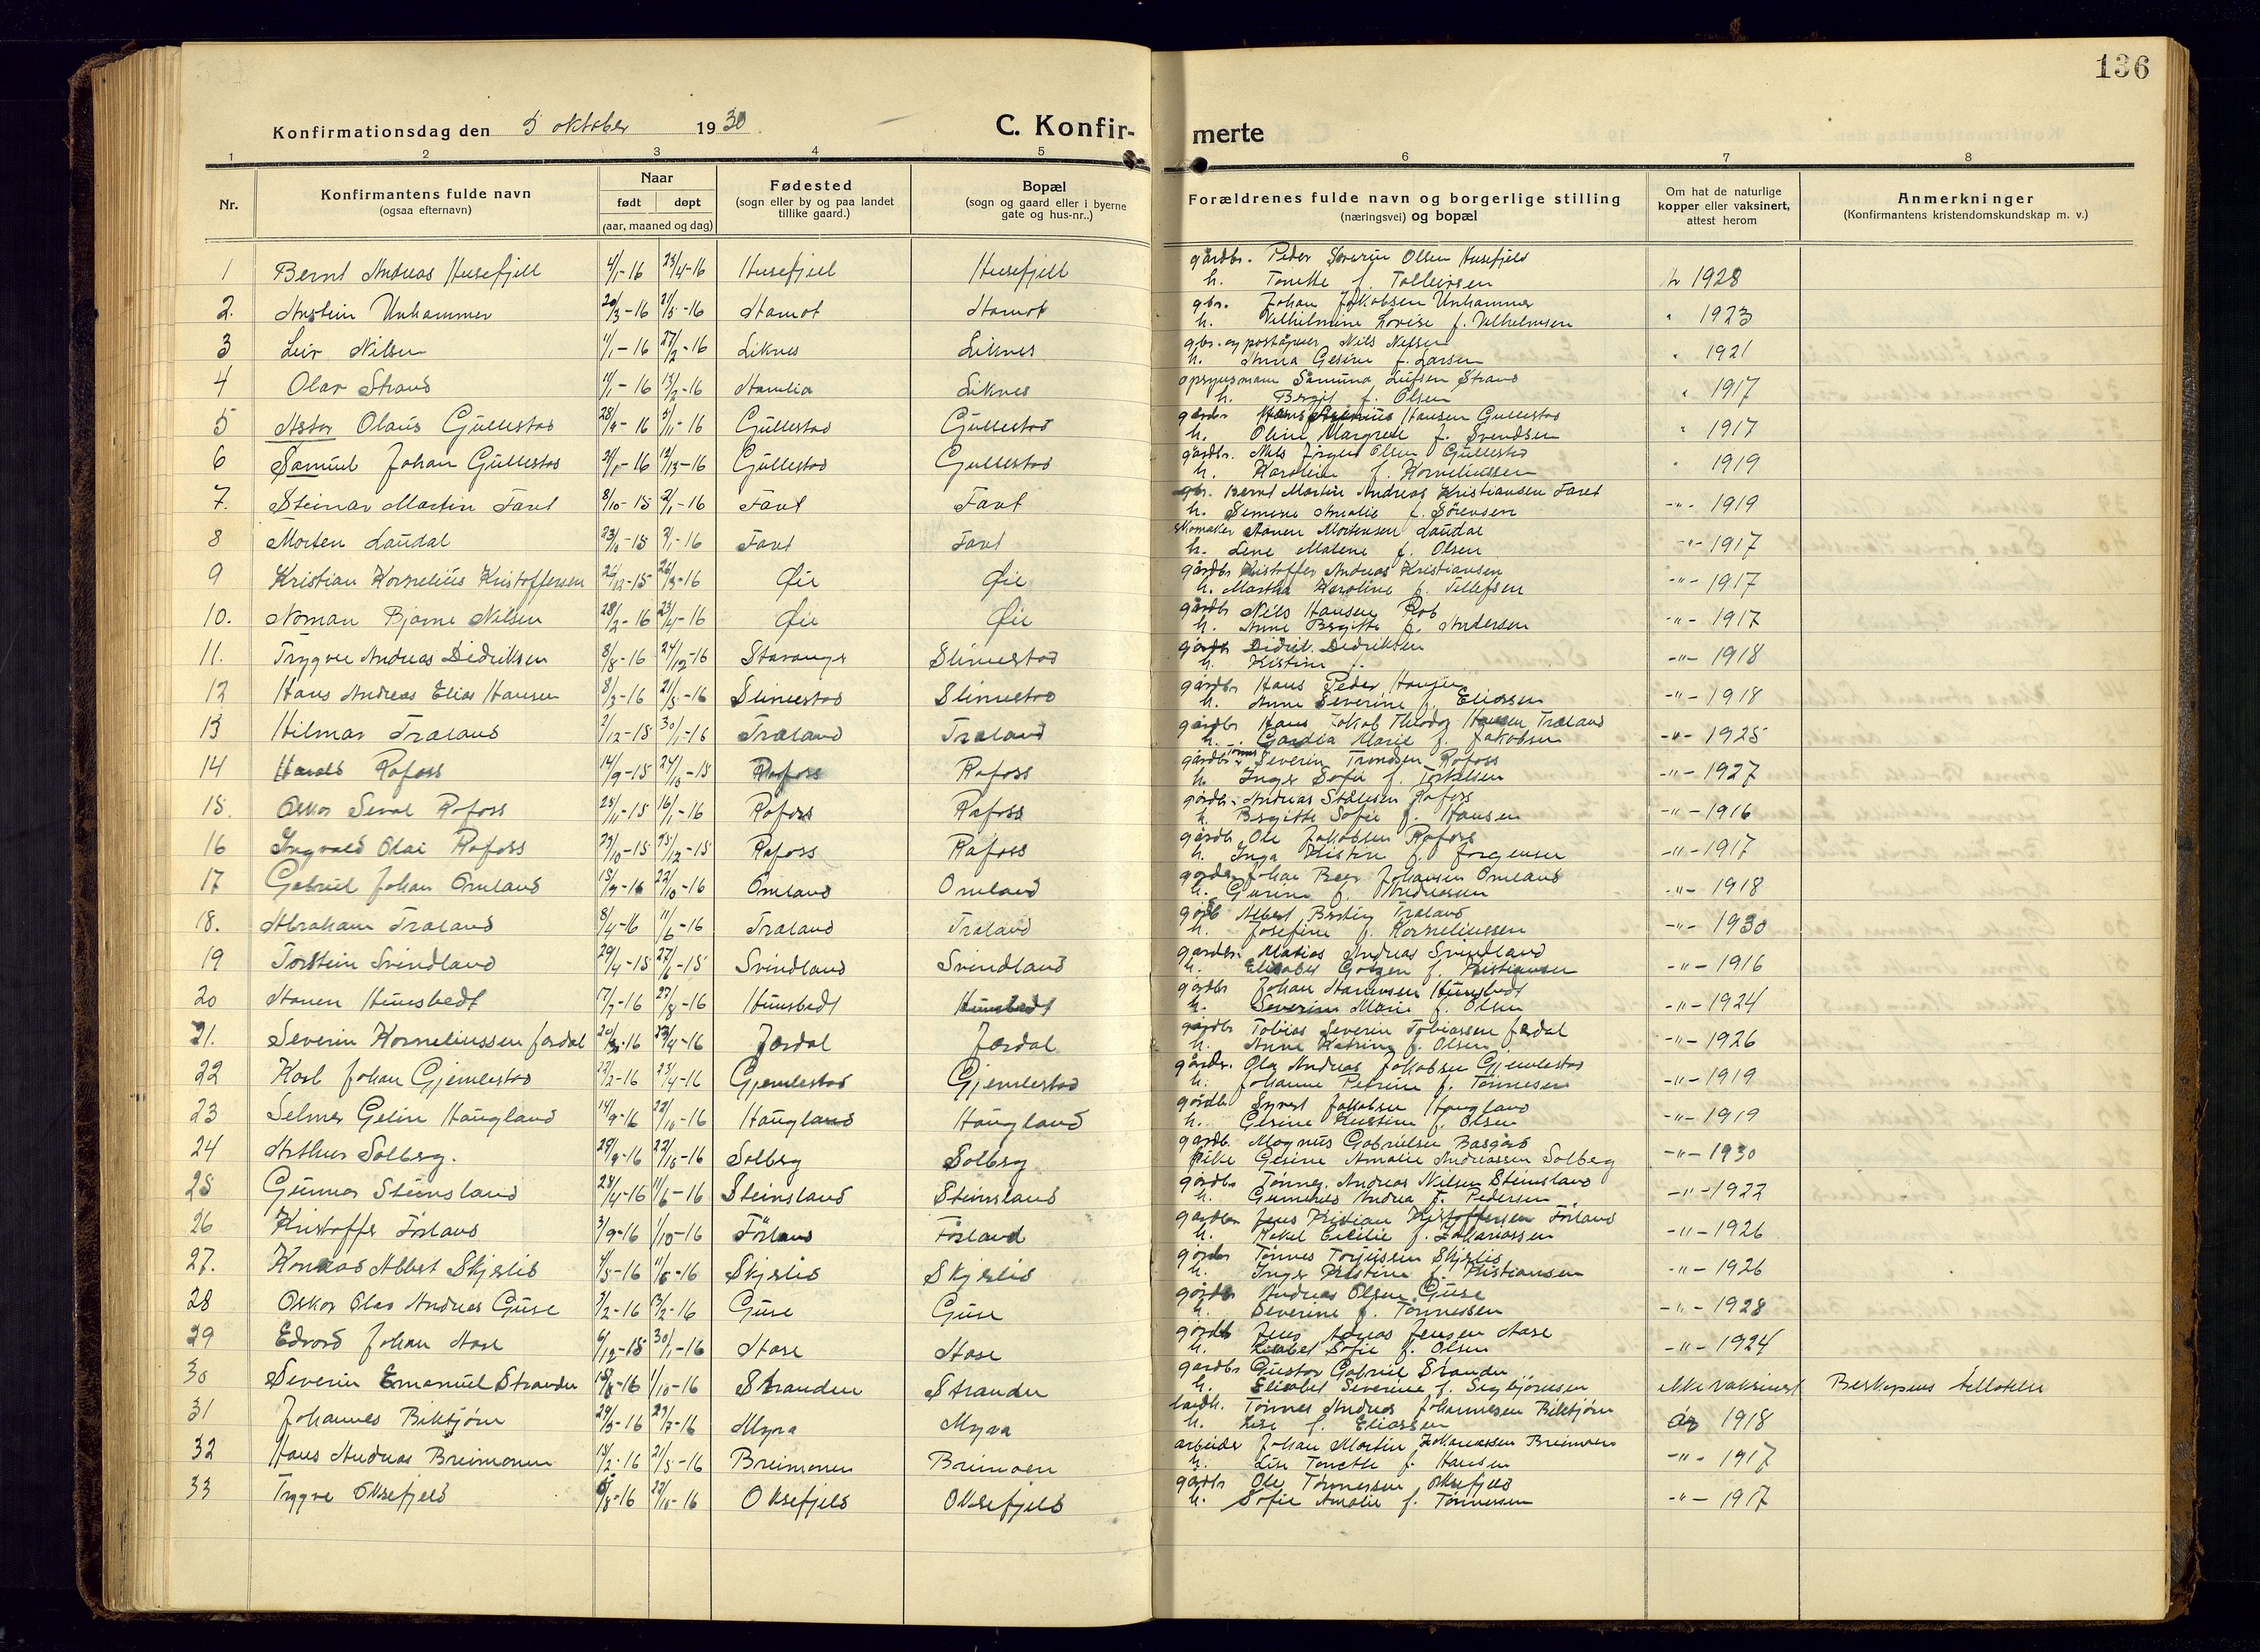 136
Konfirmationsdag den 5 oktober 1930
C. Konfir-merte
1 2 3 4 5 6 7 8
Nr.
Konfirmantens fulde navn
(ogsaa efternavn)
Naar
født døpt
(aar, maaned og dag)
Fødested
(sogn eller by og paa landet
tillike gaard.)
Bopæl
(sogn og gaard eller i byerne
gate og hus-nr..)
Forældrenes fulde navn og borgerlige stilling
(næringsvei) og bopæl
Om hat de naturlige
kopper eller vaksinert,
attest herom
Anmerkninger
(Konfirmantens kristendomskundskap m. v.)
1 Bernt Andreas Husefjell 4/1-16 23/4-16 Husefjell Husefjell gårdbr. Peder Severin Olsen Husefjeld
h. Tonette f. Tolleivsen 1928
2. Unhammer 20/3-16 21/5-16 gbr. Johan Jakobsen Unhammer
h. Vilhelmine Lovise f. Vilhelmsen " 1923
3 Leiv Nilsen 4/1-16 27/2-16 Liknes Liknes gbr. og poståpner Nils Nilsen
h. Anna Gesine f. Larsen " 1921
4 Olav Strand 11/1-16 13/2-16 Liknes opsynsmann Strand
h. Bergit f. Olsen " 1917
5 Astor Olaus Gullestad 28/9-16 5/11-16 Gullestad Gullestad gårdbr. Hansen Gullestad
h. Oline Margrete f. Svendsen " 1917
6 Samuel Johan Gullestad 12/3-16 Gullestad Gullestad gårdbr. Nils Jørgen Olsen Gullestad
h. Karoline f. Korneliussen " 1919
7. Steinar Martin Faret 8/10-15 2/1-16 Faret Faret gbr. Bernt Martin Andreas Kristiansen Faret
h. Semine Amalie f. Sørensen -"- 1919
8 Morten Laudal 2/1-16 Faret Faret Skomaker Aanen Mortensen Laudal
h. Lene Malene f. Olsen -"- 1917
9 Kristian Kornelius Kristoffersen 26/12-15 26/3-16 Øie Øie gårdbr Kristoffer Andreas Kristiansen
h. Martha Karoline f. Tellefsen -"- 1917
10. Norman Bjarne Nilsen 28/2-16 23/4-16 Øie Øie gårdbr Nils Hansen Rob
h. Anne Bergitte f. Andersen -"- 1917
11. Trygve Andreas Didriksen 8/8-16 24/12-16 Stavanger Slimestad gårdbr Didrik Didriksen
h. Kristine f. -"- 1918
12 Hans Andreas Elias Hansen 8/3-16 21/5-16 Slimestad Slimestad gårdbr Hans Peder Hansen
h. Anne Severine f. Eliassen -"- 1918
13 Hilmar Træland 2/12-15 30/1-16 Træland Træland gårdbr Hans Jakob Theodor Hansen Træland
h. Marie f. Jakobsen -"- 1925
14 Harald Rafoss 14/9-15 24/10-15 Rafoss Rafoss gårdbr Tønnes Severin Trondsen Rafoss
h. Inger Sofie f. Torkelsen -"- 1927
15. Oskar Seval Rafoss 25/11-15 16/1-16 Rafoss Rafoss gårdbr. Andreas Stålesen Rafoss
h. Bergitte Sofie f. Hansen -"- 1916
16 Ingvald Olai Rafoss 23/10-15 25/12-15 Rafoss Rafoss gårdb. Ole Jakobsen Rafoss
h. Inga Kristine f. Jørgensen -"- 1917
17 Gabriel Johan Omland 15/9-16 22/10-16 Omland Omland gårdbr Johan Johansen Omland
h. Gurine f. Andreassen -"- 1918
18. Abraham Træland 8/4-16 11/6-16 Træland Træland gårdb Albert Træland
h. Josefine f. Korneliussen -"- 1930
19 Torstein Svindland 29/4-15 27/6-15 Svindland Svindland gårdbr. Matias Andreas Svindland
h. Elisabet f. Kristiansen -"- 1916
20 Aanen Hunsbedt 17/7-16 27/8-16 Hunsbedt Hunsbedt gårdbr Johan Aanensen Hunsbedt
h. Severine Marie f. Olsen -"- 1924
21. Severin Korneliussen Jerdal 23/4-16 Jerdal Jerdal gårdbr Tobias Severin Tobiassen Jerdal
h. Anne Katrine f. Olsen -"- 1926
22 Karl Johan Gjemlestad 22/2-16 23/4-16 Gjemlestad Gjemlestad gårdbr. Olaf Andreas Jakobsen Gjemlestad
h. Johanne Petrine f. Tønnesen -"- 1919
23 Selmer Gelin Haugland 14/9-16 22/10-16 Haugland Haugland gårdb Syvert Jakobsen Haugland
h. Gesine Kristine f. Olsen -"- 1919
24 Arthur Solberg. 29/9-16 22/10-16 Solberg Solberg gårdb. Magnus Gabrielsen Basgård
pike Gesine Amalie Andreassen Solberg -"- 1930
25 Gunnar Steinsland 28/4-16 11/6-16 Steinsland Steinsland gårdbr Tønnes Andreas Nilsen Steinsland
h. Andrea f. Pedersen -"- 1922
26 Kristoffer Førland 3/9-16 1/10-16 Førland Førland gårdbr Jens Kristian Kristoffersen Førland
h. Rakel Cicilie f. Zakariassen -"- 1926
27. Konrad Albert Skjerlid 4/5-16 11/6-16 Skjerlid Skjerlid gårdbr Tønnes Torjussen Skjerlid
h. Inger Kristine f. Kristiansen -"- 1926
28 Oskar Olav Andreas Guse 2/2-16 13/2-16 Guse Guse gårdb Andreas Olsen Guse
h. Severine f. Tønnessen -"- 1928
29 Edvard Johan Aase 6/12-15 30/1-16 Aase Aase gårdb Jens Jensen Aase
h. Lisabet Sofie f. Olsen -"- 1924
30 Severin Emanuel Stranden 1/10-16 Stranden Stranden gårdbr Gustav Gabriel Stranden
h. Elisabet Severine f. Sigbjørnsen ikke vaksinert Biskopens tillatelse
31 Johannes Biktjørn 29/5-16 Myra Myra landh. Tønnes Andreas Johannesen Biktjørn
h. Lise f. Eliassen år 1918
32 Hans Andreas Breimoen 13/2-16 21/5-16 Breimoen Breimoen arbeider Johan Martin Zakariassen Breimoen
h. Lise Tonette f. Hansen -"- 1917
33 Trygve Oksefjeld 22/10-16 Oksefjeld Oksefjeld gårdbr Ole Tønnessen Oksefjeld
h. Sofie Amalie f. Tønnessen -"- 1917